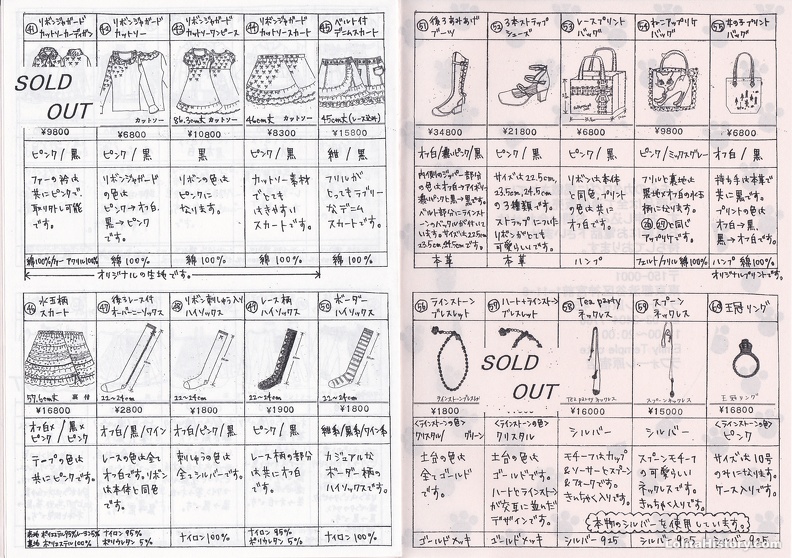 ㊶ リボンジャガード
カットソーカーディガン
SOLD
OUT
¥9800
ピンク/黒
ファーの衿は
共にピンクで、
取りはずし可能
です。
綿100%/ファーアクリル100%
㊷ リボンジャガード
カットソー
カットソー
¥6800
ピンク/黒
リボンジャガード
の色は
ピンク→オフ白、
黒→ピンク
です。
綿 100%
㊸ リボンジャガード
カットソーワンピース
86.5cm丈 カットソー
¥10800
黒
リボンの色は
ピンクに
なります。
綿 100%
㊹ リボンジャガード
カットソースカート
46cm丈 カットソー
¥8300
ピンク/黒
カットソー素材
でとても
はきやすい
スカートです。
綿 100%
オリジナルの生地です。
㊺ ベルト付
デニムスカート
45cm丈(レース込み)
¥15800
紺/黒
フリルが
とってもラブリー
なデニム
スカートです。
綿 100%
㊻ 水玉柄
スカート
57.6cm丈
¥16800
オフ白×ピンク/黒×ピンク
テープの色は
共にピンクです。
表地 ポリエステル95%レーヨン5%
裏地 ポリエステル100%
㊼ 後ろレース付
オーバーニーソックス
22〜24cm
¥2800
オフ白/黒/ワイン
レースの色は全て
オフ白です。リボン
は本体と同色
です。
ナイロン 95%
ポリウレタン 5%
㊽ リボン刺しゅう入り
ハイソックス
22〜24cm
¥1800
オフ白/ピンク/黒
刺しゅうの色は
全てシルバーです。
ナイロン100%
㊾ レース柄
ハイソックス
22〜24cm
¥1900
ピンク/黒
レース柄の部分
は共にオフ白
です。
ナイロン 95%
ポリウレタン 5%
㊿ ボーダー
ハイソックス
22〜24cm
¥1800
紺系/黒系/ワイン系
カジュアルな
ボーダー柄の
ハイソックスです。
ナイロン100%
51 後ろあみあげ
ブーツ
¥34800
オフ白/濃いピンク/黒
内側のジッパー部分
の色はオフ白→アイボリー、
濃いピンクと黒→黒です。
ベルト部分にラインストーン
のバックルが付いて
います。サイズは22.5cm
23.5cm,24.5cmです。
本革
52 3本ストラップ
シューズ
¥21800
オフ白/ピンク/黒
サイズは22.5cm,
23.5cm,24.5cm
の3種類です。
ストラップについた
リボンがとても
可愛らしいです。
本革
53 レースプリント
バッグ
¥6800
ピンク/黒
リボンは本体
と同色、プリント
の色は共に
オフ白です。
ハンプ
54 ねこアップリケ
バッグ
¥9800
ピンク/ミックスグレー
フリルと裏地は
黒地×オフ白の水玉
柄になります。
と同じ
アップリケです。
フェルト/フリル 綿100%
55 女の子プリント
バッグ
¥6800
オフ白/黒
持ち手は本革で
共に黒です。
プリントの色は
オフ白→黒、
黒→オフ白です。
ハンプ 綿100%
オリジナルプリントです。
56 ラインストーン
ブレスレット
ラインストーンブレスレット
¥1800
〈ラインストーンの色〉
クリスタル/グリーン
土台の色は
全てゴールド
です。
ゴールドメッキ
57 ハート+ラインストーン
ブレスレット
SOLD
OUT
〈ラインストーンの色〉
クリスタル
土台の色は
ゴールドです。
ハートとラインストーン
が交互に並んだ
デザインです。
ゴールドメッキ
58 Tea party
ネックレス
Tea party ネックレス
¥16000
シルバー
モチーフはカップ
&ソーサーとスプーン
&フォークです。
きんちゃく入りです。
シルバー925
59 スプーン
ネックレス
スプーンネックレス
¥15000
シルバー
スプーンモチーフ
の可愛らしい
ネックレスです。
きんちゃく入りです。
本物のシルバーを使用しています。
シルバー925
60 王冠リング
王冠リング
¥16800
〈ラインストーンの色〉
ピンク
サイズは10号
のみになります。
ケース入りです。
シルバー925
LolitaHistory.com